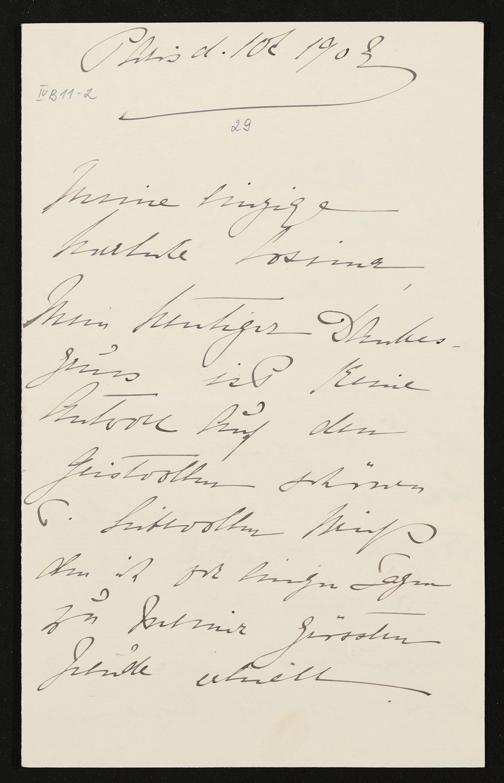 d. 10t 1903
IV B 11-2
29
Meine einzige
Cosima,
Mein heutiger Dankes-
gruss ist keine
Antwort auf den
geistvollen schönen
u. liebevollen Brief
den ich vor einigen Tagen
zu meiner grössten
Freude erhielt